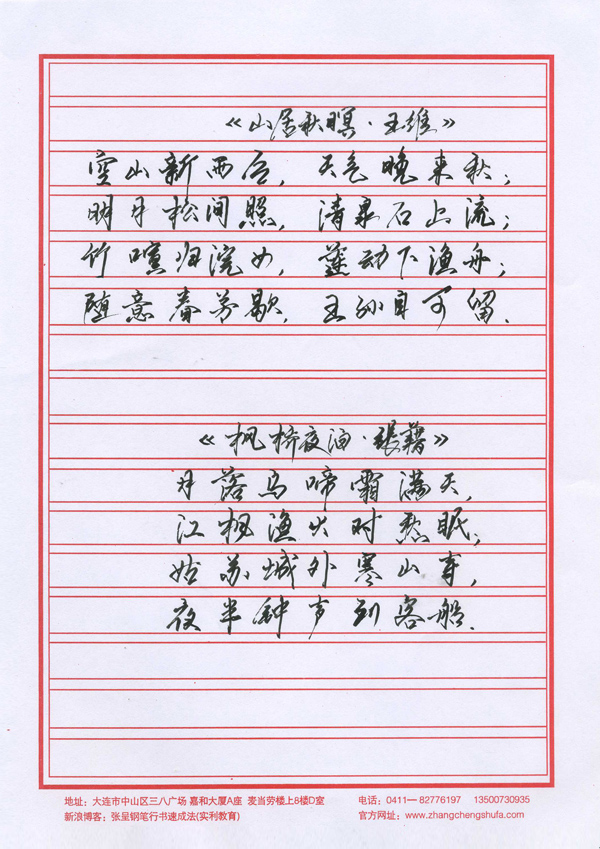 《山居秋暝·王维》
空山新雨后，天气晚来秋；
明月松间照，清泉石上流；
竹喧归浣女，莲动下渔舟；
随意春芳歇，王孙自可留.
《枫桥夜泊·张籍》
月落乌啼霜满天，
江枫渔火对愁眠；
姑苏城外寒山寺，
夜半钟声到客船.
地址：大连市中山区三八广场 嘉和大厦A座 麦当劳楼上8楼D室 电话：0411—82776197 13500730935
新浪博客：张呈钢笔行书速成法(实利教育) 官方网址：www.zhangchengshufa.com